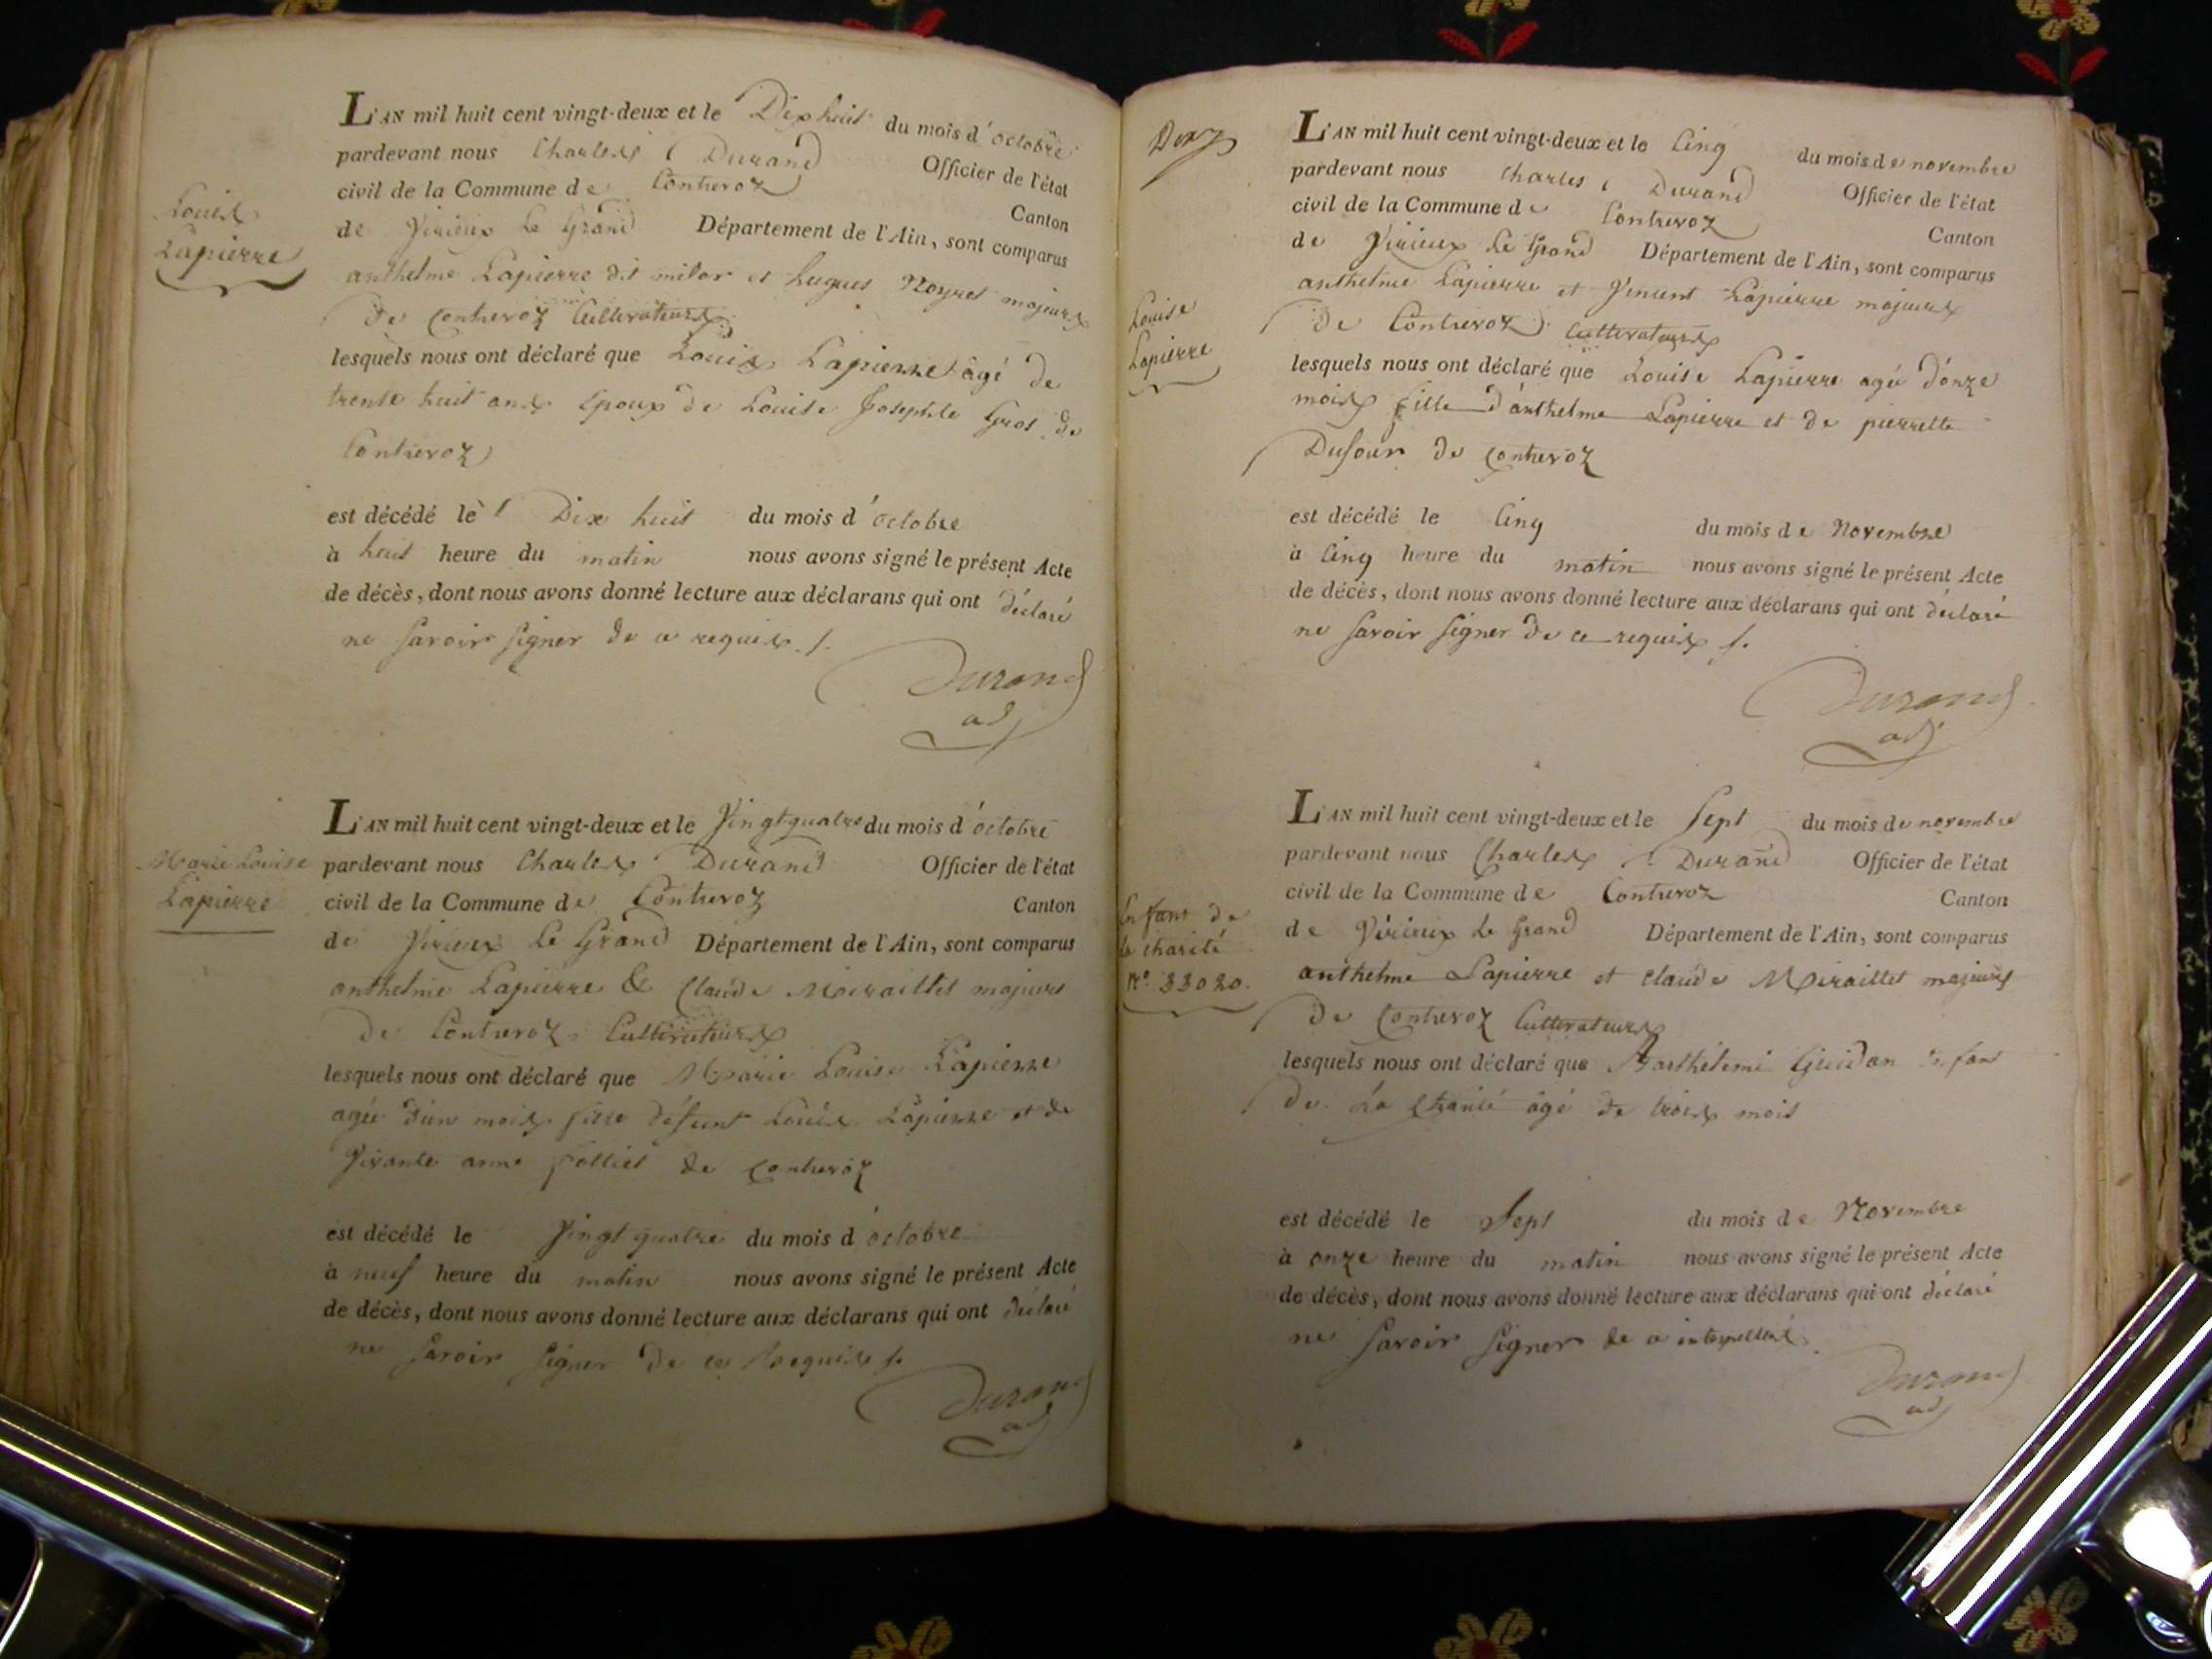 Louis
Lapierre
L'AN mil huit cent vingt-deux et le Dix huit du mois d'octobre
pardevant nous Charles Durand Officier de l'état
civil de la Commune de Contrevoz Canton
de Virieux Le Grand Département de l'Ain, sont comparus
anthelme Lapierre dit milor et hugues Noyret majeurs
De Contrevoz Cultivateurs
lesquels nous ont déclaré que Louis Lapierre âgé de
trente huit ans Epoux de Louise Josephte Gros de
Contrevoz
est décédé le Dix huit du mois d'octobre
à huit heure du matin nous avons signé le présent Acte
de décès, dont nous avons donné lecture aux déclarans qui ont déclaré
ne savoir signer de ce requis ./.
Durand
adj
Marie Louise
Lapierre
L'AN mil huit cent vingt-deux et le Vingt quatre du mois d'octobre
pardevant nous Charles Durand Officier de l'état
civil de la Commune de Contrevoz Canton
de Virieux Le Grand Département de l'Ain, sont comparus
anthelme Lapierre & Claude Miraillet majeurs
De Contrevoz Cultivateurs
lesquels nous ont déclaré que Marie Louise Lapierre
agée d'un mois fille défunt Louis Lapierre et de
Vivante anne de Contrevoz
est décédé le Vingt quatre du mois d'octobre
à neuf heure du matin nous avons signé le présent Acte
de décès, dont nous avons donné lecture aux déclarans qui ont déclaré
ne savoir signer de ce Requis /.
Durand
adj
Louise
Lapierre
L'AN mil huit cent vingt-deux et le Cinq du mois de novembre
pardevant nous Charles Durand Officier de l'état
civil de la Commune de Contrevoz Canton
de Virieux Le Grand Département de l'Ain, sont comparus
anthelme Lapierre et Vincent Lapierre majeurs
De Contrevoz Cultivateurs
lesquels nous ont déclaré que Louise Lapierre agée d'onze
mois fille d'anthelme Lapierre et de pierrette
Dufour de Contrevoz
est décédé le Cinq du mois de Novembre
à Cinq heure du matin nous avons signé le présent Acte
de décès, dont nous avons donné lecture aux déclarans qui ont déclaré
ne savoir signer de ce requis /.
Durand
adj
Enfant de
la charité
N.º 33020.
L'AN mil huit cent vingt-deux et le Sept du mois de novembre
pardevant nous Charles Durand Officier de l'état
civil de la Commune de Contrevoz Canton
de Virieux Le Grand Département de l'Ain, sont comparus
anthelme Lapierre et Claude Miraillet majeurs
De Contrevoz Cultivateurs
lesquels nous ont déclaré que Barthélemi Guidon Enfant
de La Charité âgé de trois mois
est décédé le Sept du mois de Novembre
à onze heure du matin nous avons signé le présent Acte
de décès, dont nous avons donné lecture aux déclarans qui ont déclaré
ne savoir signer de ce interpellés
Durand
adj